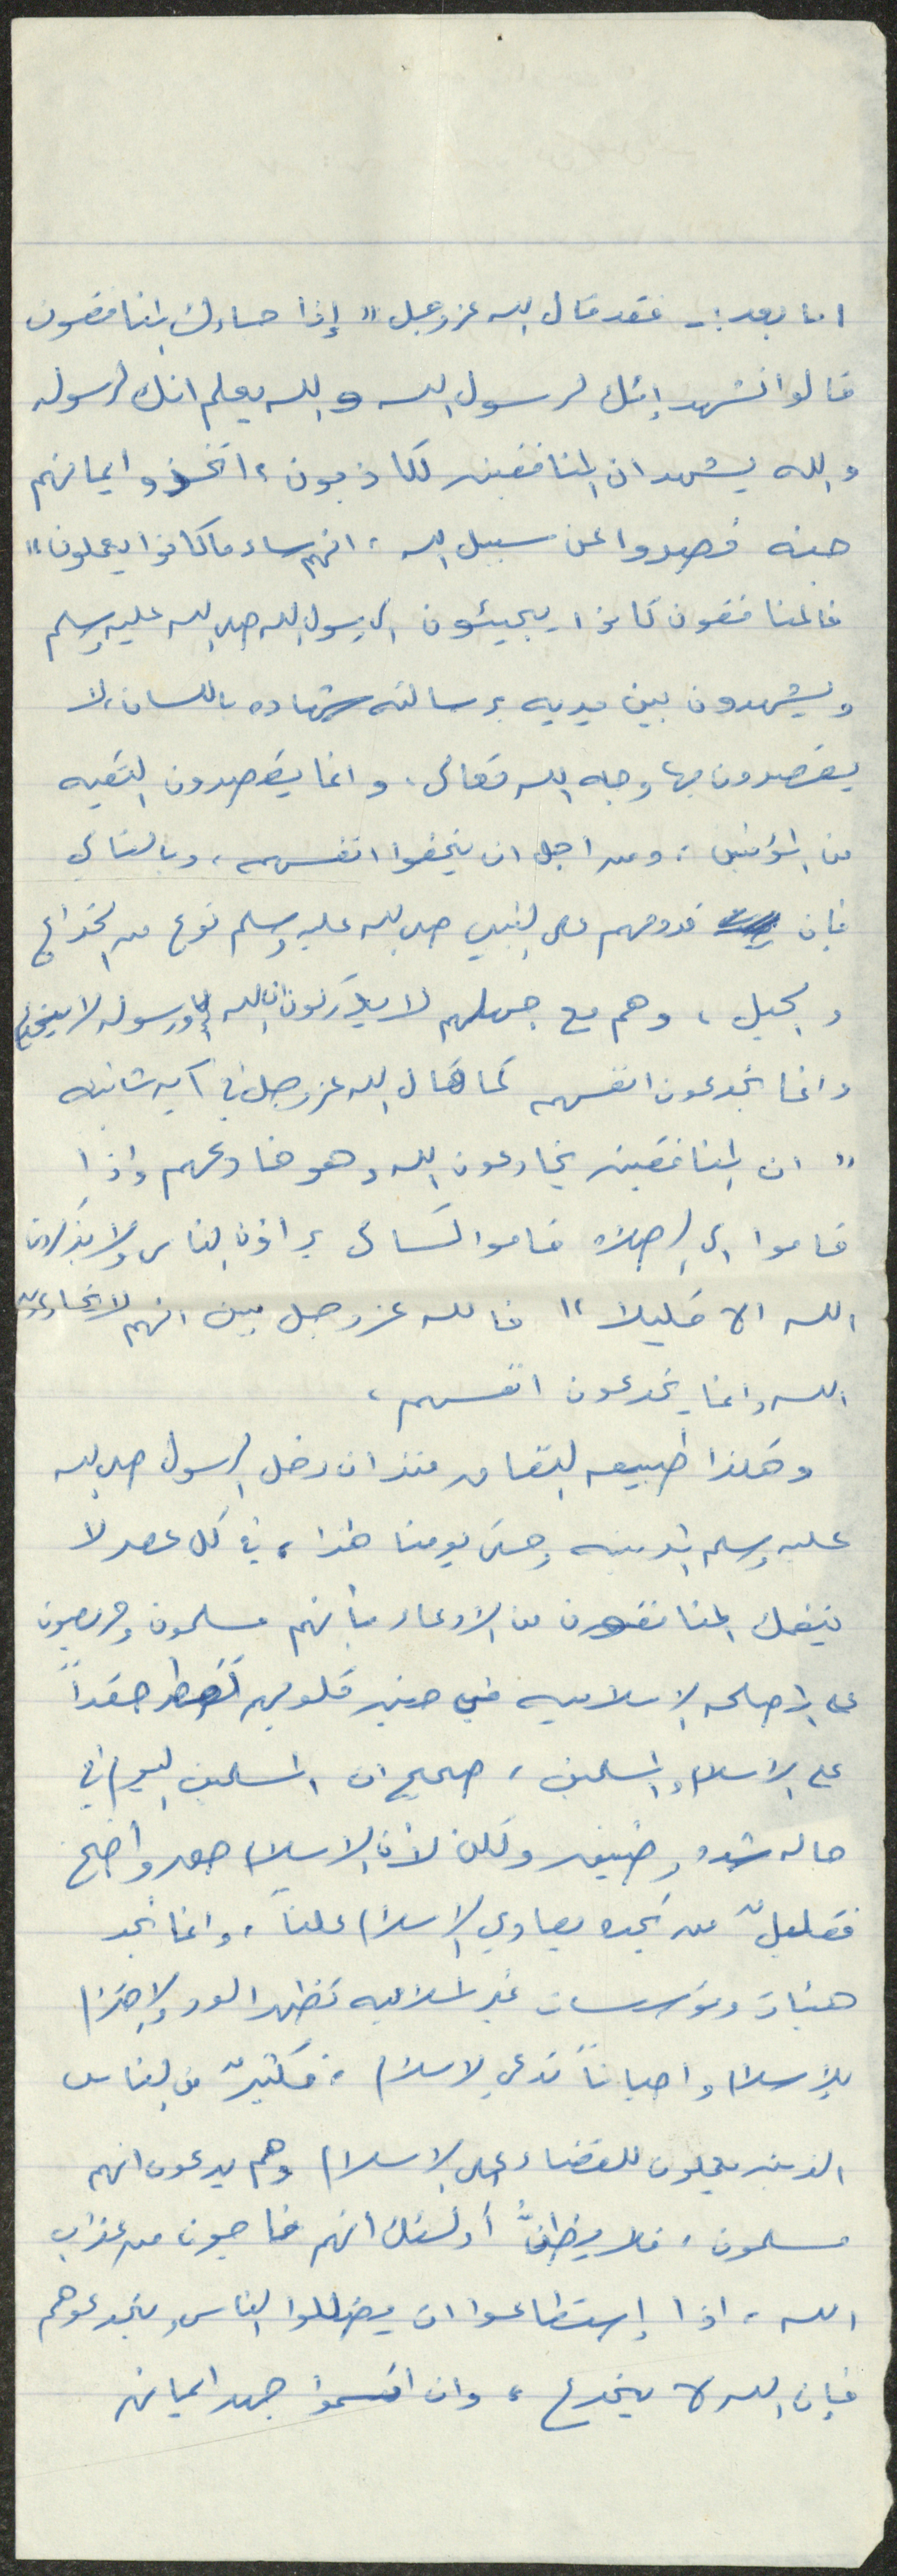 اما بعد :- فقد قال الله عز وجل " إذا جاءك المنافقون
قالوا نشهد إنك لرسول الله والله يعلم انك لرسوله
والله يشهد ان المنافقين لكاذبون ، اتخذوا ايمانهم
جنه فصدوا عن سبيل الله ، انهم ساء ما كانوا يعملون "
فالمنافقون كانوا يجيئون الى رسول الله صلى الله عليه وسلم
ويشهدون بين يديه برسالته شهاده باللسان ، لا
يقصدون بها وجه الله تعالى ، وانما يقصدون التقيه
من المؤمنين ، ومن اجل ان يخفوا انفسهم ، وبالتالي
فإن قدومهم على النبي صلى الله عليه وسلم نوع من الخداع
والحيل ، وهم مع جهلهم لا يدركون ان الله ورسوله لا يخدع
وانما يخدعون انفسهم كما قال الله عز وجل في آيه ثانيه
" ان المنافقين يخادعون الله وهو خادعهم واذا
قاموا الى الصلاه قاموا كسالى يراؤن الناس ولا يذكرون
الله الا قليلا " فالله عز وجل بين انهم لا يخادعون
الله وانما يخدعون انفسهم ،
وهكذا طبيعه النفاق منذ ان دخل الرسول صلى الله
عليه وسلم المدينه وحتى يومنا هذا ، في كل عصر لا
ينفك المنافقون من الادعاء بأنهم مسلمون وحريصون
على المصلحه الاسلاميه في حين قلوبهم تقطر حقداً
على الاسلام والمسلمين ، صحيح ان المسلمين اليوم في
حاله شده وضيق ولكن لأن الاسلام حق واضح
فقليلٌ من تجده يعادي الاسلام علناً ، وانما تجد
هيئات ومؤسسات غير اسلاميه تظهر الود والاحترام
للإسلام واحياناً تدعي الاسلام ، فكثيرٌ من الناس
الذين يعملون للقضاء على الاسلام وهم يدعون انهم
مسلمون ، فلا يظنَّ أولئك انهم ناجون من عذاب
الله ، اذا إستطاعوا ان يضللوا الناس ويخدعوهم
فإن الله لا يخدع ، وان اقسموا جهد ايمانهم